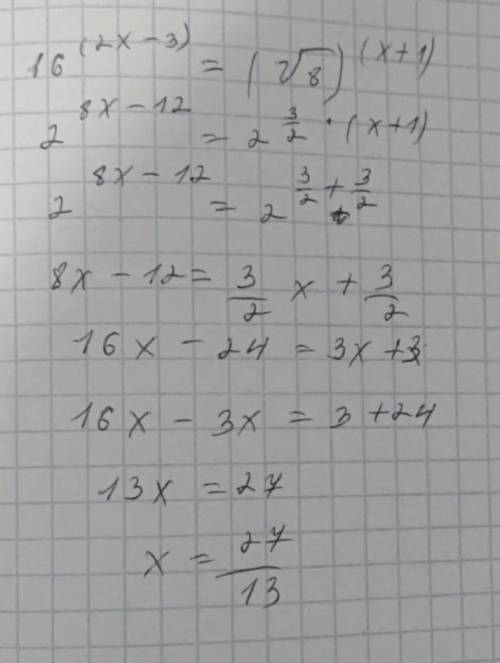 16^(2x-3) = (√8)^(x+1)
2^(8x-12) = 2^(3/2 · (x+1))
2^(8x-12) = 2^(3/2 + 3/2)
8x - 12 = 3/2 x + 3/2
16x - 24 = 3x + 3
16x - 3x = 3 + 24
13x = 27
x = 27/13